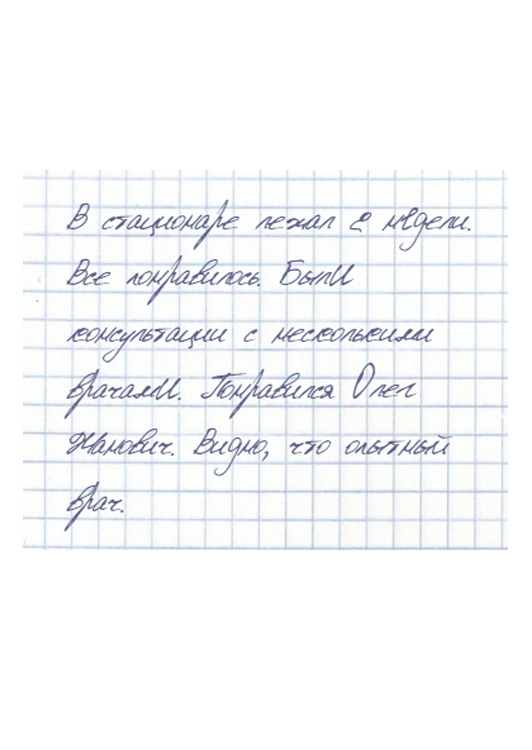 В стационаре лежал 2 недели.
Все понравилось. Были
консультации с несколькими
врачами. Понравился Олег
Жанович. Видно, что опытный
врач.